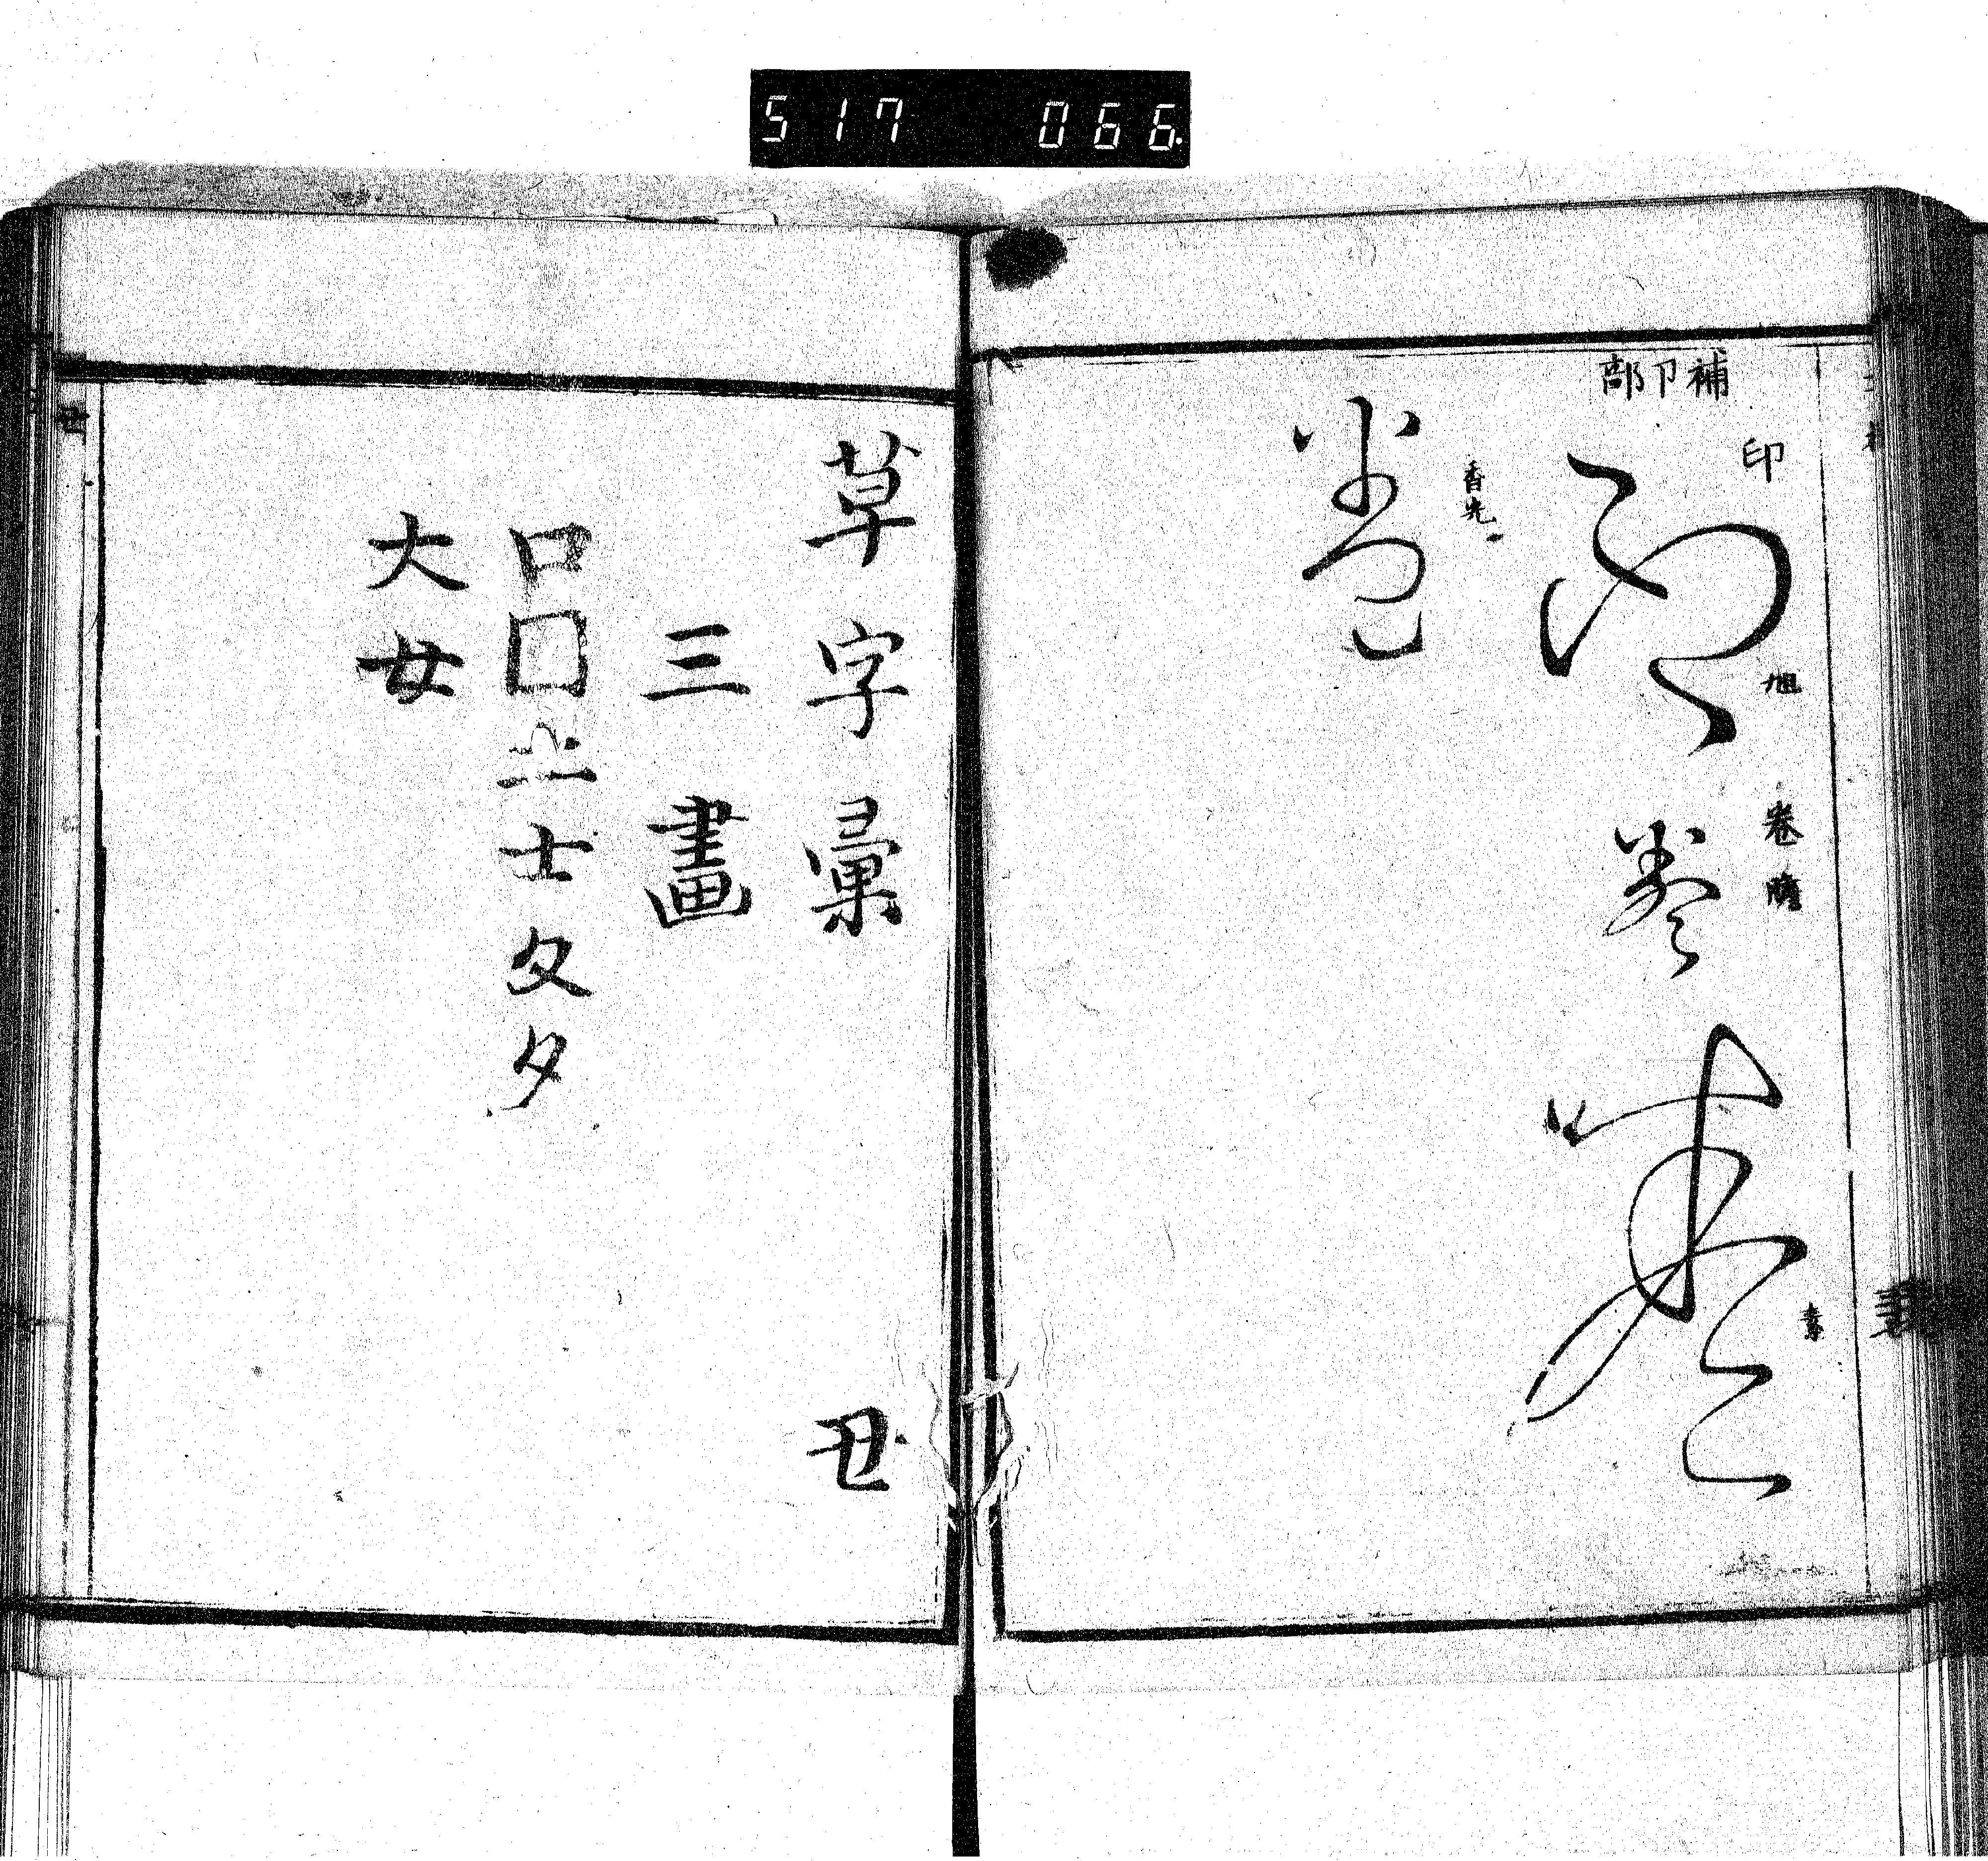 517 066
補卩部
印
旭
卷
香光
草字彙 丑
三畫
口囗土士夂夕
大女